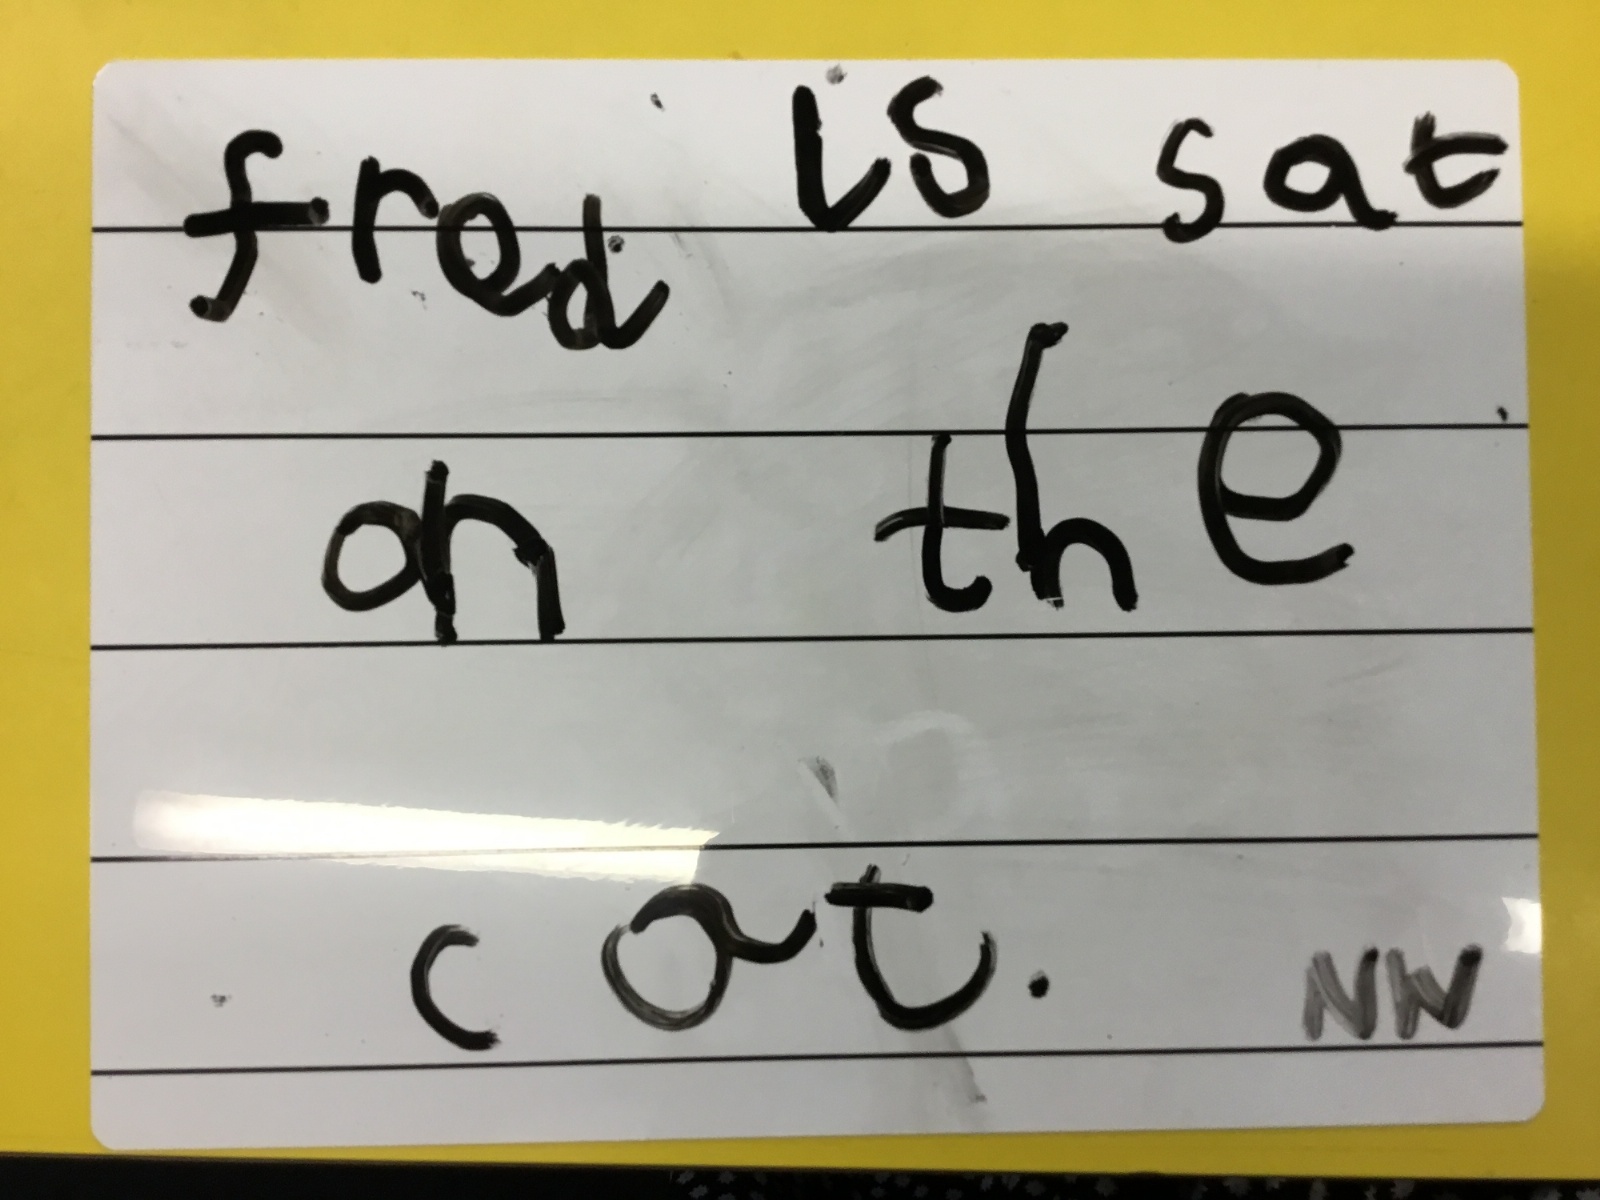 fred is sat
on the
cat. NW